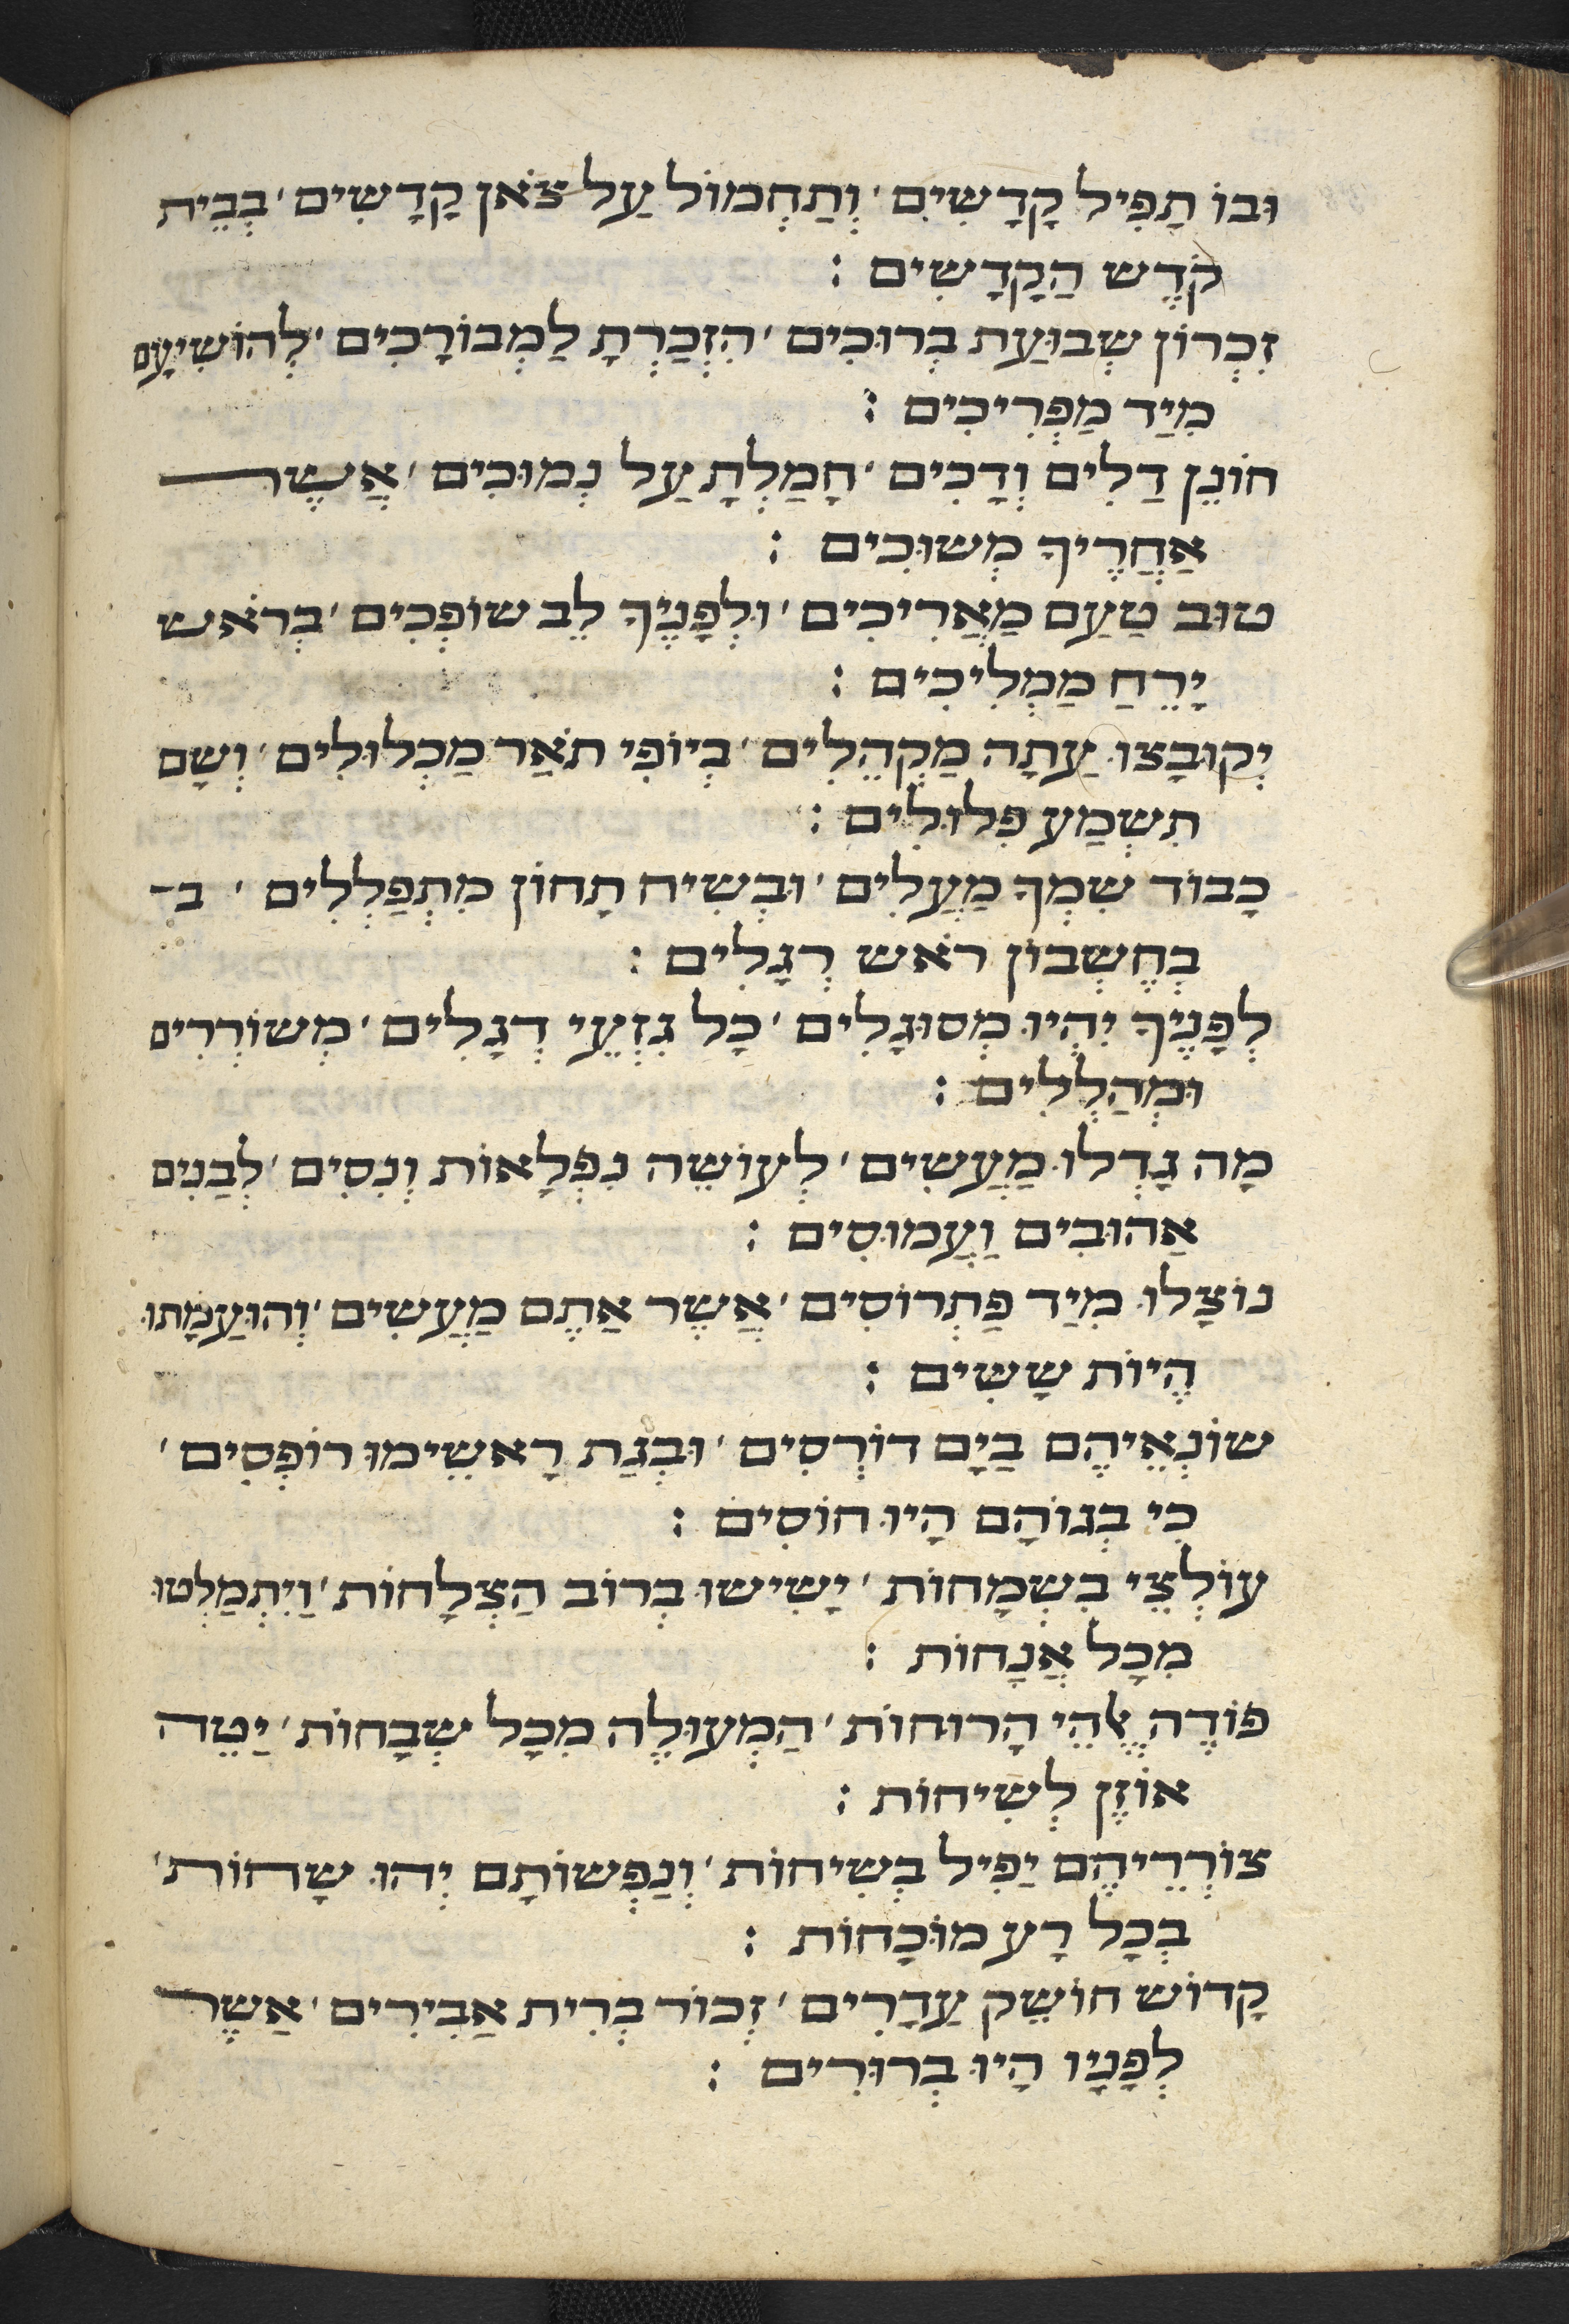 וּבוֹ תַפִיל קָדָשִים׳ וְתַחְמוֹל עַל צֹאן קָדָשִים׳ בְבֵית
קֹדֶש הַקָדָשִים :
זִכְרוֹן שְבוּעַת בְרוּכִים׳ הִזְכַרְתָ לַמְבוֹרָכִים׳ לְהוֹשִיעָם
מִיַד מַפְרִיכִים :
חוֹנֵן דַלִים וְדָכִים׳ חָמַלְתָ עַל נְמוּכִים׳ אֲשֶר
אַחֲרֶיךָ מְשוּכִים :
טוּב טַעַם מַאֲרִיכִים׳ וּלְפָנֶיךָ לֵב שוֹפְכִים׳ בְרֹאש
יָרֵחַ מַמְלִיכִים :
יְקוּבָצוּ עַתָה מַקְהֵלִים׳ בְיוֹפִי תֹאַר מַכְלוּלִים׳ וְשָם
תִשְמַע פִלוּלִים :
כָבוֹד שִמְךָ מַעֲלִים׳ וּבְשִיח תָחוֹן מִתְפַלְלִים׳ ב־
בְחֶשְבוֹן רֹאש רְגָלִים :
לְפָנֶיךָ יִהְיוּ מְסוּגָלִים׳ כָל גִזְעֵי דְגָלִים׳ מְשוֹרְרִים
וּמְהַלְלִים :
מָה גָדְלוּ מַעֲשִים׳ לְעוֹשֵה נִפְלָאוֹת וְנִסִים׳ לְבַנִים
אַהוּבִים וַעֲמוּסִים :
נוֹצָלוּ מִיַד פַתְרוֹסִים׳ אֲשֶר אַתֶם מַעֲשִים׳ וְהוּעַמָתוּ
הֱיוֹת שָשִים :
שוֹנְאֵיהֶם בַיָם דוֹרְסִים׳ וּבְגַת רָאשֵימוּ רוֹפְסִים׳
כִי בְגוֹהָם הָיוּ חוֹסִים :
עוֹלְצֵי בִשְמָחוֹת׳ יָשִישוּ בְרוֹב הַצְלָחוֹת׳ וַיִתְמַלְטוּ
מִכָל אֲנָחוֹת :
פוֹדֶה אֱלֹהֵי הָרוּחוֹת׳ הַמְעוּלֶה מִכָל שְבָחוֹת׳ יַטֵה
אוֹזֶן לְשִיחוֹת :
צוֹרְרֵיהֶם יַפִיל בְשִיחוֹת׳ וְנַפְשוֹתָם יְהוּ שָחוֹת׳
בְכָל רָע מוֹכָחוֹת :
קָדוֹש חוֹשֵק עַדָרִים׳ זְכוֹר בְרִית אַבִירִים׳ אַשֶר
לְפָנָיו הָיוּ בְרוּרִים :